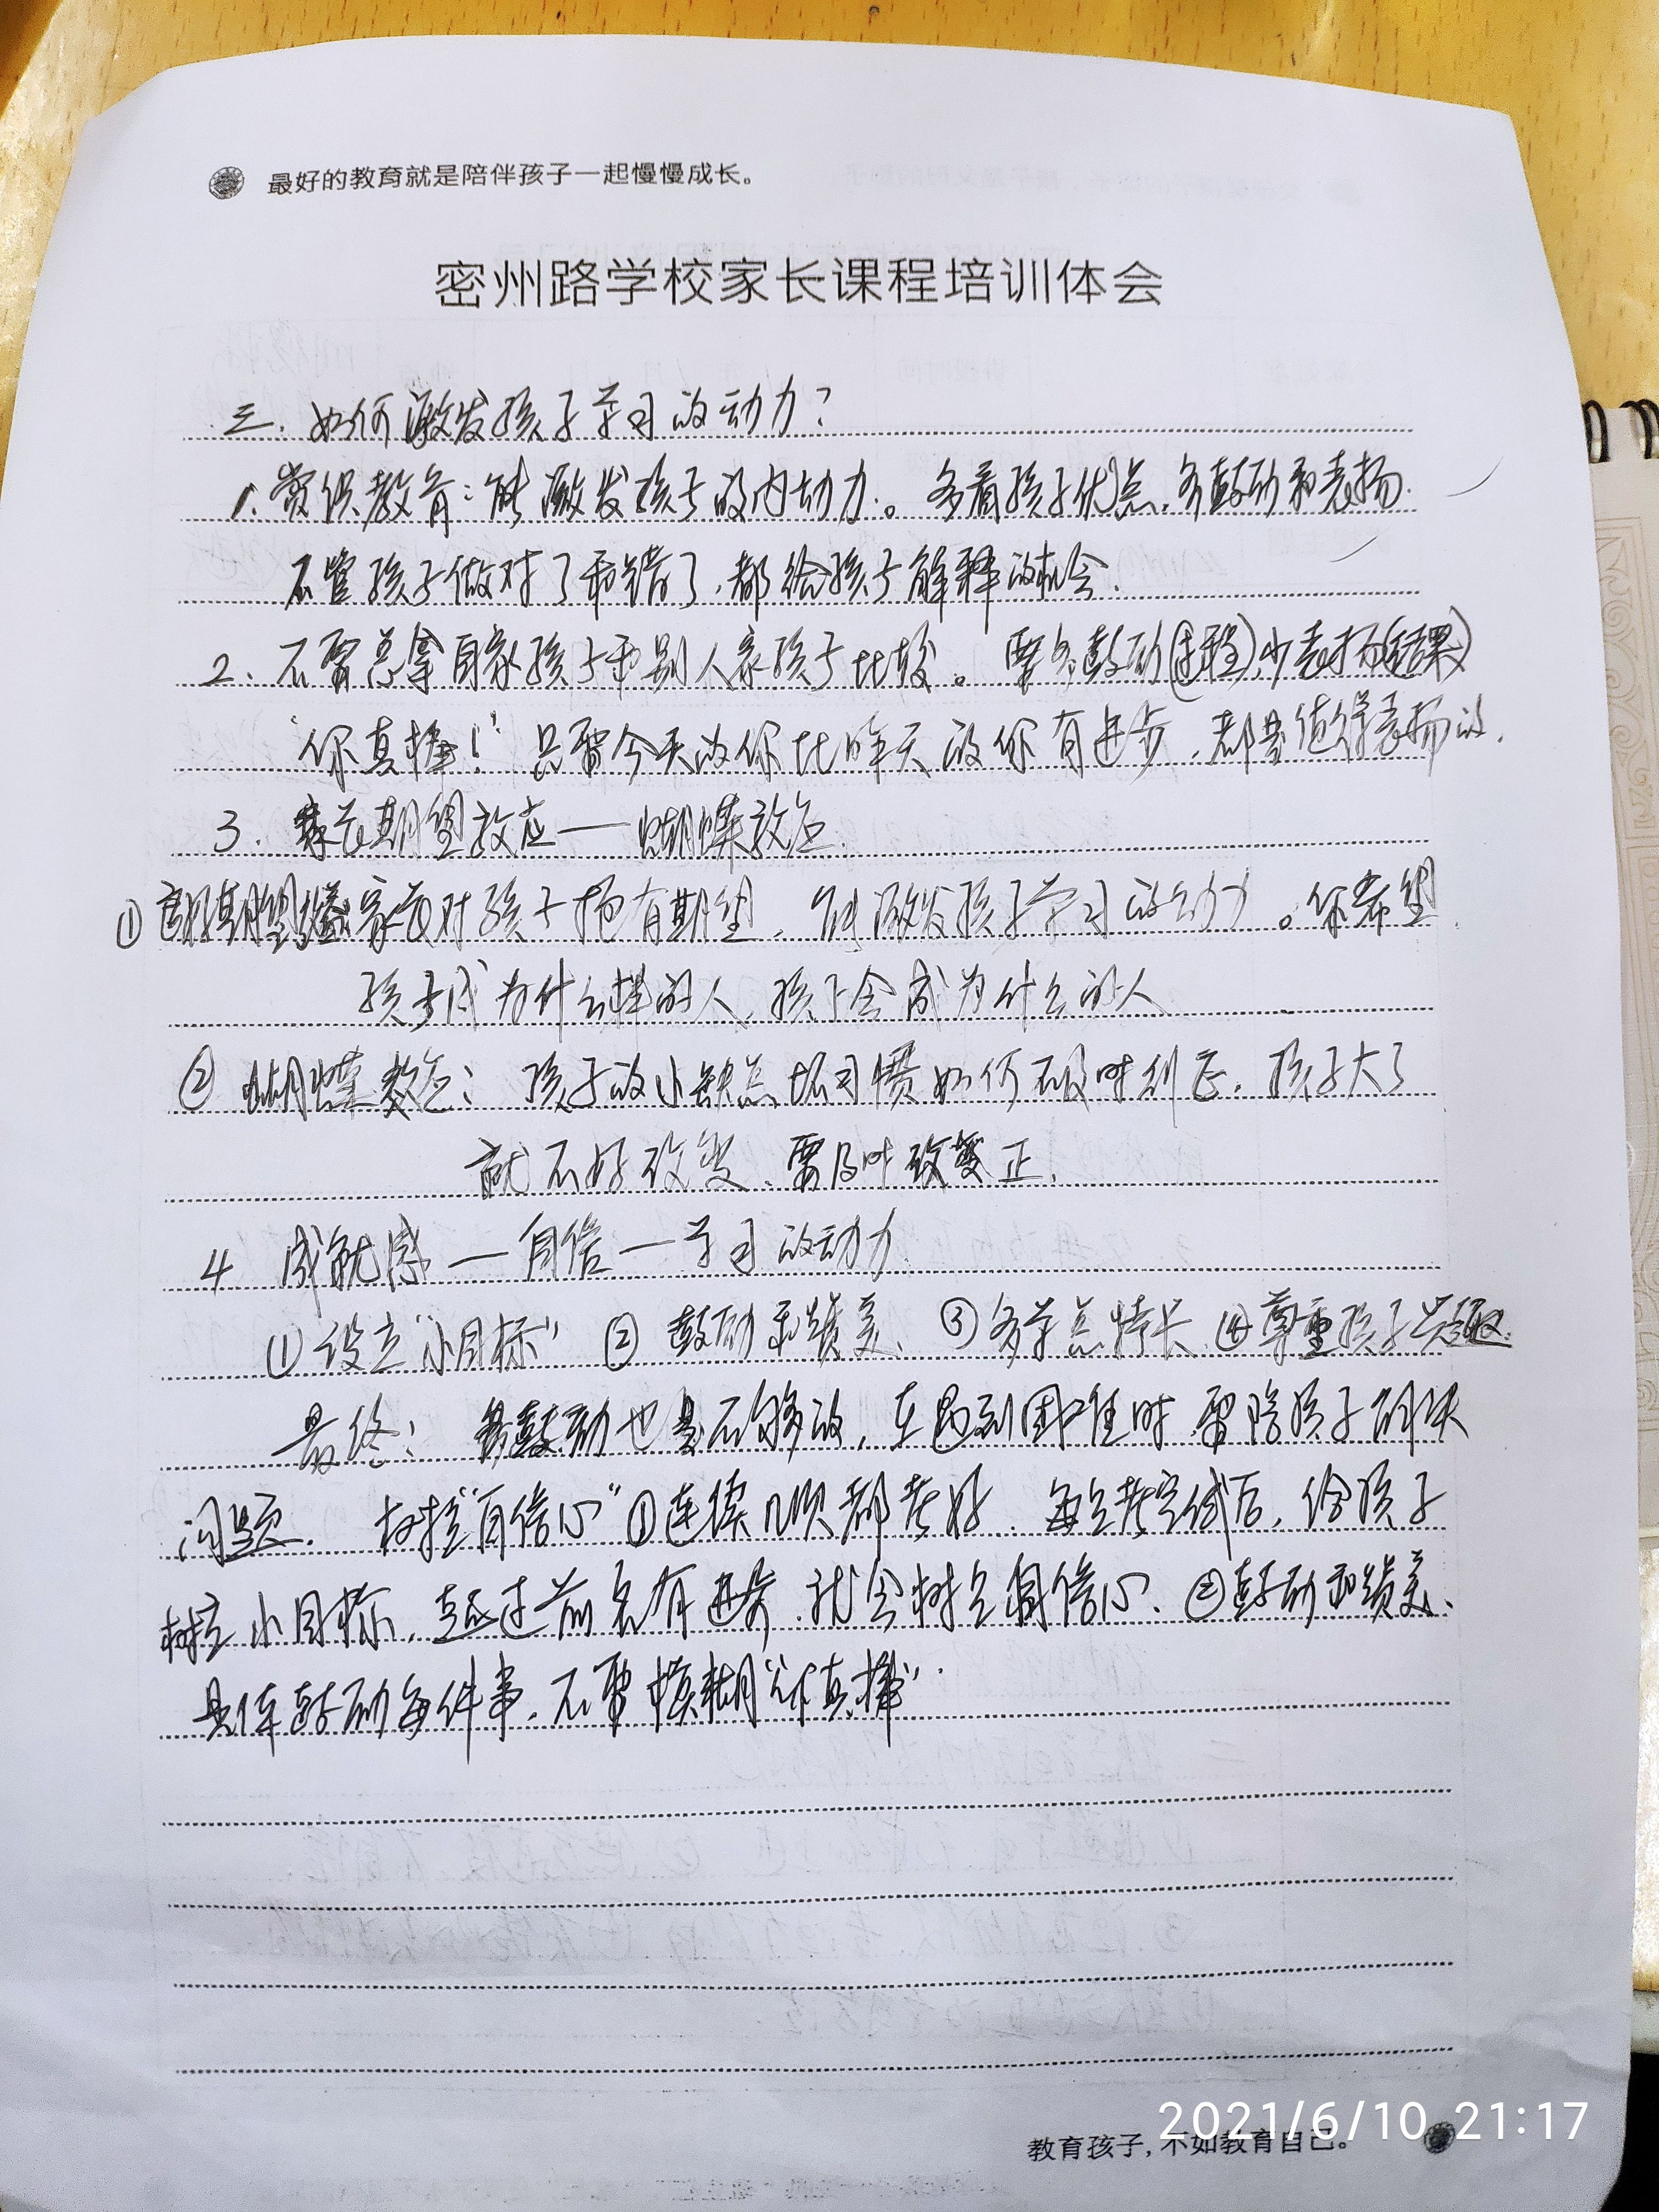 最好的教育就是陪伴孩子一起慢慢成长。
密州路学校家长课程培训体会
三.如何激发孩子学习的动力?
1.赏识教育:能激发孩子的内动力。多看孩子优点,多鼓励和表扬.
不管孩子做对了和错了,都给孩子解释的机会.
2.不要总拿自家孩子和别人家孩子比较。要多鼓励(过程),少表扬(结果)
"你真棒!"只要今天的你比昨天的你有进步,都是值得表扬的.
3.家长期望效应—蝴蝶效应.
① 家长对孩子抱有期望,能激发孩子学习的动力。你希望
孩子成为什么样的人,孩子会成为什么的人
② 蝴蝶效应:孩子的小缺点坏习惯如何不及时纠正,孩子大了
就不好改变、需及时改正.
4 成就感—自信—学习的动力.
①设立"小目标" ②鼓励和赞美、③多学点特长 ④尊重孩子兴趣.
最终:多鼓励也是不够的,在遇到困难时,要陪孩子解决
问题. 树立"自信心"①连续几次都考好. 每次考完试后,给孩子
树立小目标,超过前名有进步,就会树立自信心、②鼓励和赞美、
具体鼓励每件事.不要模糊"你真棒".
2021/6/10 21:17
教育孩子,不如教育自己。